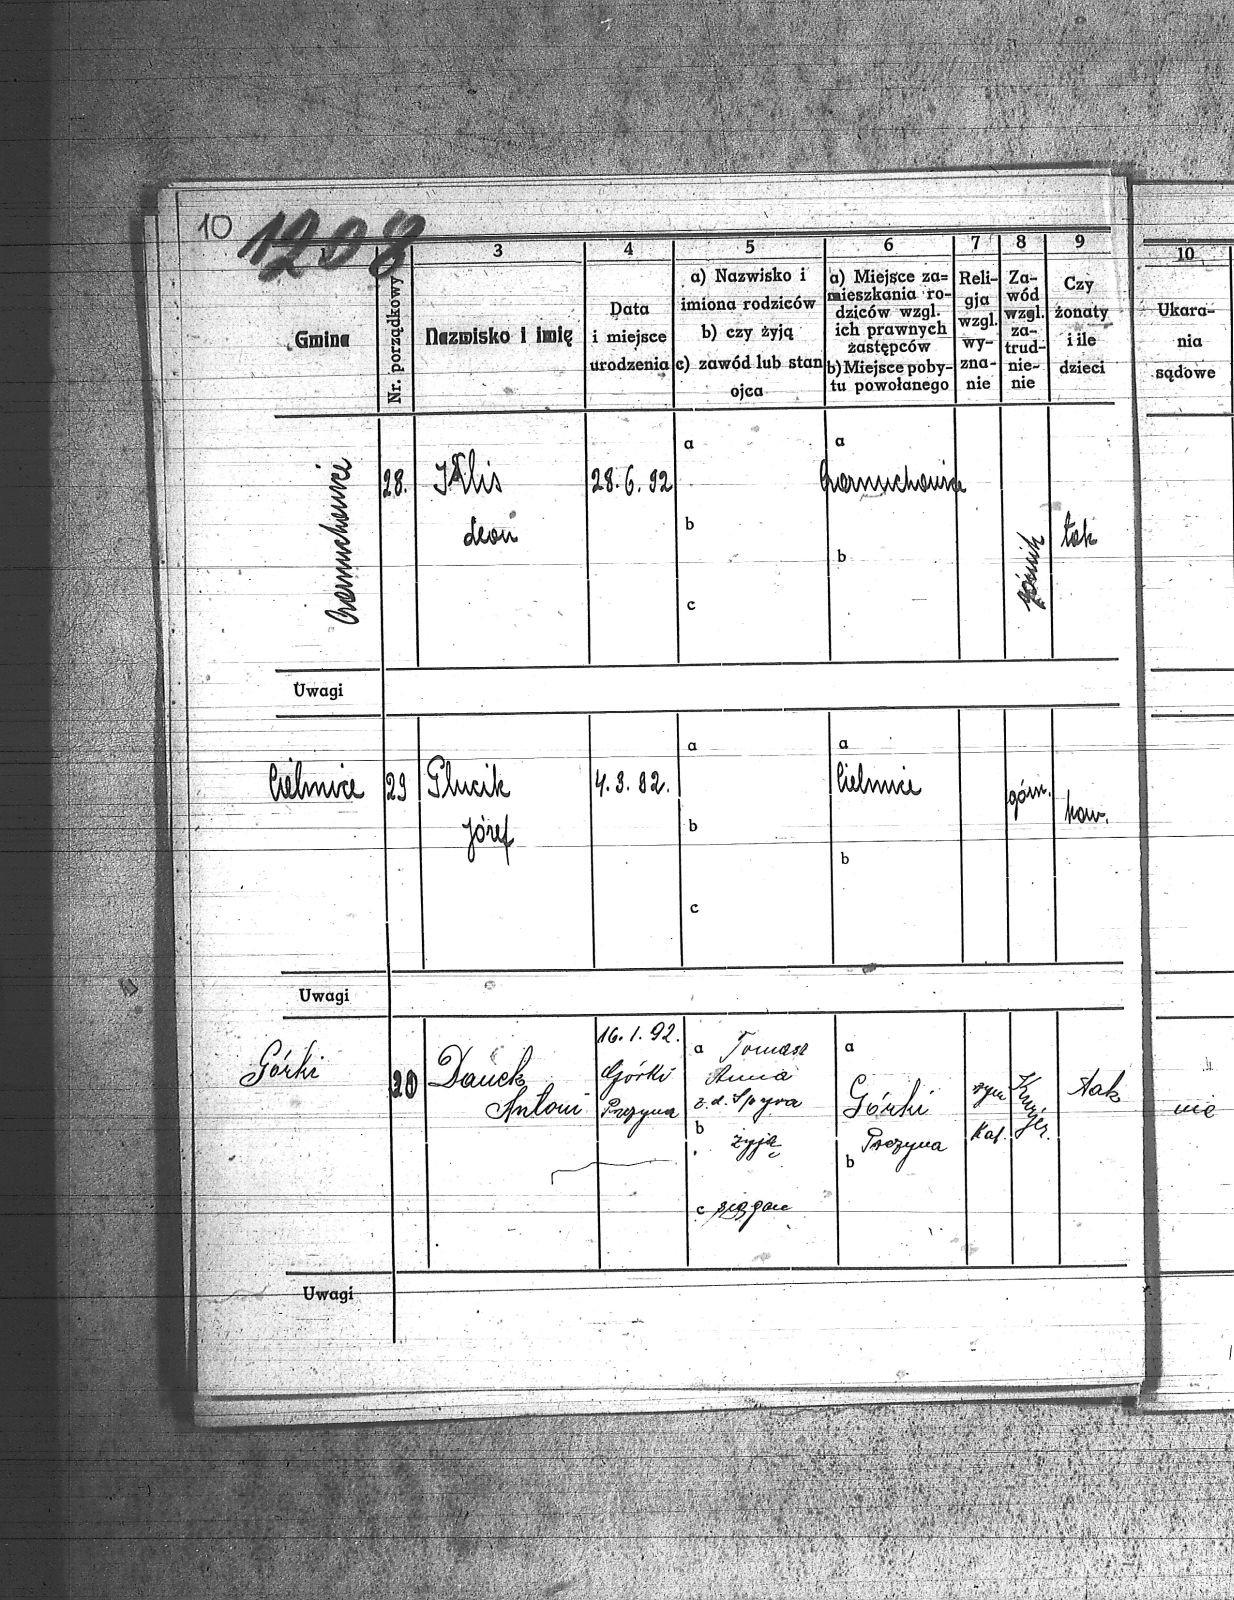 10
1208
3 4 5 6 7 8 9 10
Gmina
Nr. porządkowy
Nazwisko i imię
Data
i miejsce
urodzenia
a) Nazwisko i
imiona rodziców
b) czy żyją
c) zawód lub stan
ojca
a) Miejsce za=
mieszkania ro-
dziców wzgl.
ich prawnych
zastępców
b) Miejsce poby-
tu powołanego
Reli-
gja
wzgl.
wy-
zna-
nie
Za-
wód
wzgl.
za-
trud-
nie-
nie
Czy
żonaty
i ile
dzieci
Ukara-
nia
sądowe
28.
Klis
Leon
28.6.92
a
b
c
a
b
górnik
tak
Uwagi
Cielmice
29
Plucik
Józef
4.3.92.
a
b
c
a
Cielmice
b
górn.
kaw.
Uwagi
Górki
Danek
Antoni
16.1.92.
Górki
a Tomasz
Anna
z.d. Spyra
b
żyją
c
a
Górki
b
rzym
Kat.
tak
nie
Uwagi